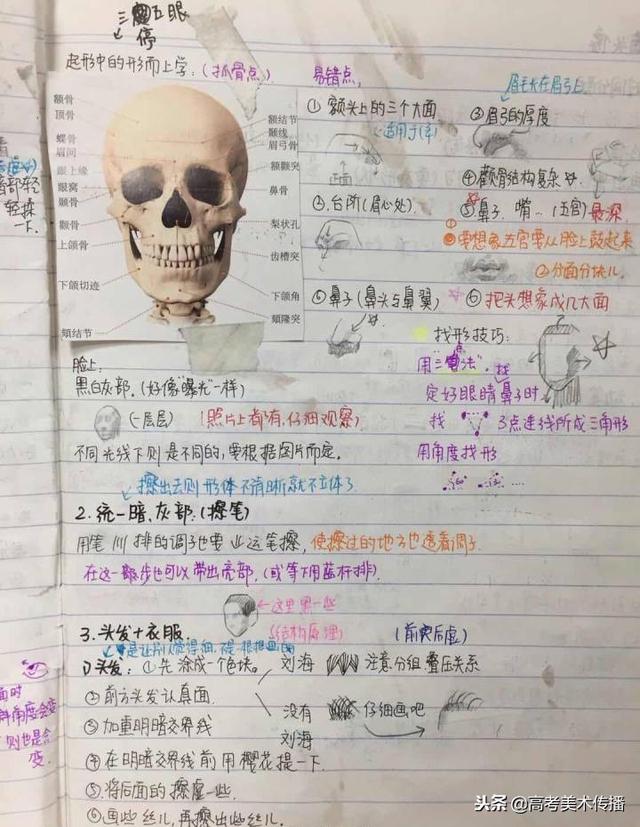 三庭五眼
停
起形中的形而上学:(抓骨点)
易错点,
眉毛长在眉弓上
额骨
顶骨
蝶骨
眉间
眶上缘
眼窝
颧骨
颧骨
上颌骨
下颌切迹
頦结节
额结节
颞线
眉弓骨
额颧突
鼻骨
梨状孔
齿槽突
下颌角
頦隆突
①额头上的三个大面
适用于
正面
②台阶(眉心处).
③眉弓的厚度
④颧骨结构复杂
⑤鼻子、嘴…(五官)最深
①要想象五官要从脸上鼓起来
②分面分块儿.
⑥鼻子(鼻头与鼻翼)
⑥把头想象成几大面
找形技巧:
定好眼睛鼻子时
找 3点连线所成三角形
用角度找形
脸上:
黑白灰部.(好像"曝光"一样)
(一层层)
(照片上都有,仔细观察)
不同光线下则是不同的,要根据图片而定.
擦出去则形体不清晰就不立体了
2.统一暗、灰部:(擦笔)
用笔 排的调子也要 运笔擦,使擦过的地方也透着调子.
在这一步也可以带出亮部.(或等下用蓝杆排).
这里黑一些
(结构原理)
3.头发+衣服.
(前实后虚)
1)头发:①先涂成一个色块。
刘海
注意分组叠压关系
②前方头发认真画
没有
刘海
仔细画吧
③加重明暗交界线
④在明暗交界线前用樱花提一下.
⑤将后面的擦虚一些.
⑥画些丝儿,再擦出些丝儿.
轻揉
一下.
面时
斜角度会变
则也是会
变.
头条@高考美术传播